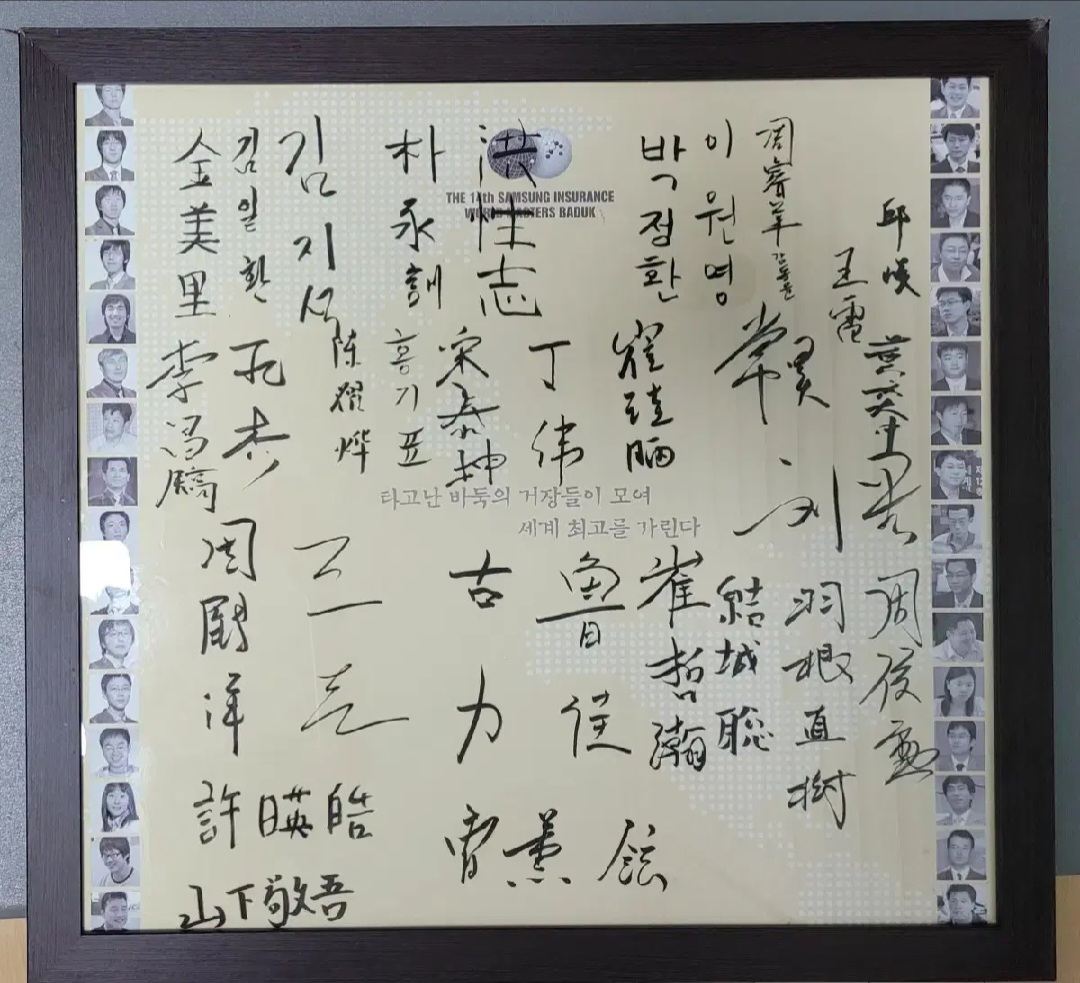 THE 14th SAMSUNG INSURANCE
WORLD MASTERS BADUK
金美里
김일환
김지석
朴永訓
洪性志
박정환
이원영
周睿羊
강동윤
王雷
邱峻
李昌鎬
孔杰
陈耀烨
홍기표
宋泰坤
丁伟
崔珪昞
常昊
黄奕中
타고난 바둑의 거장들이 모여
세계 최고를 가린다
刘星
周鶴洋
古力
魯佳
崔哲瀚
結城聡
羽根直樹
周俊勳
許暎皓
曺薰鉉
山下敬吾